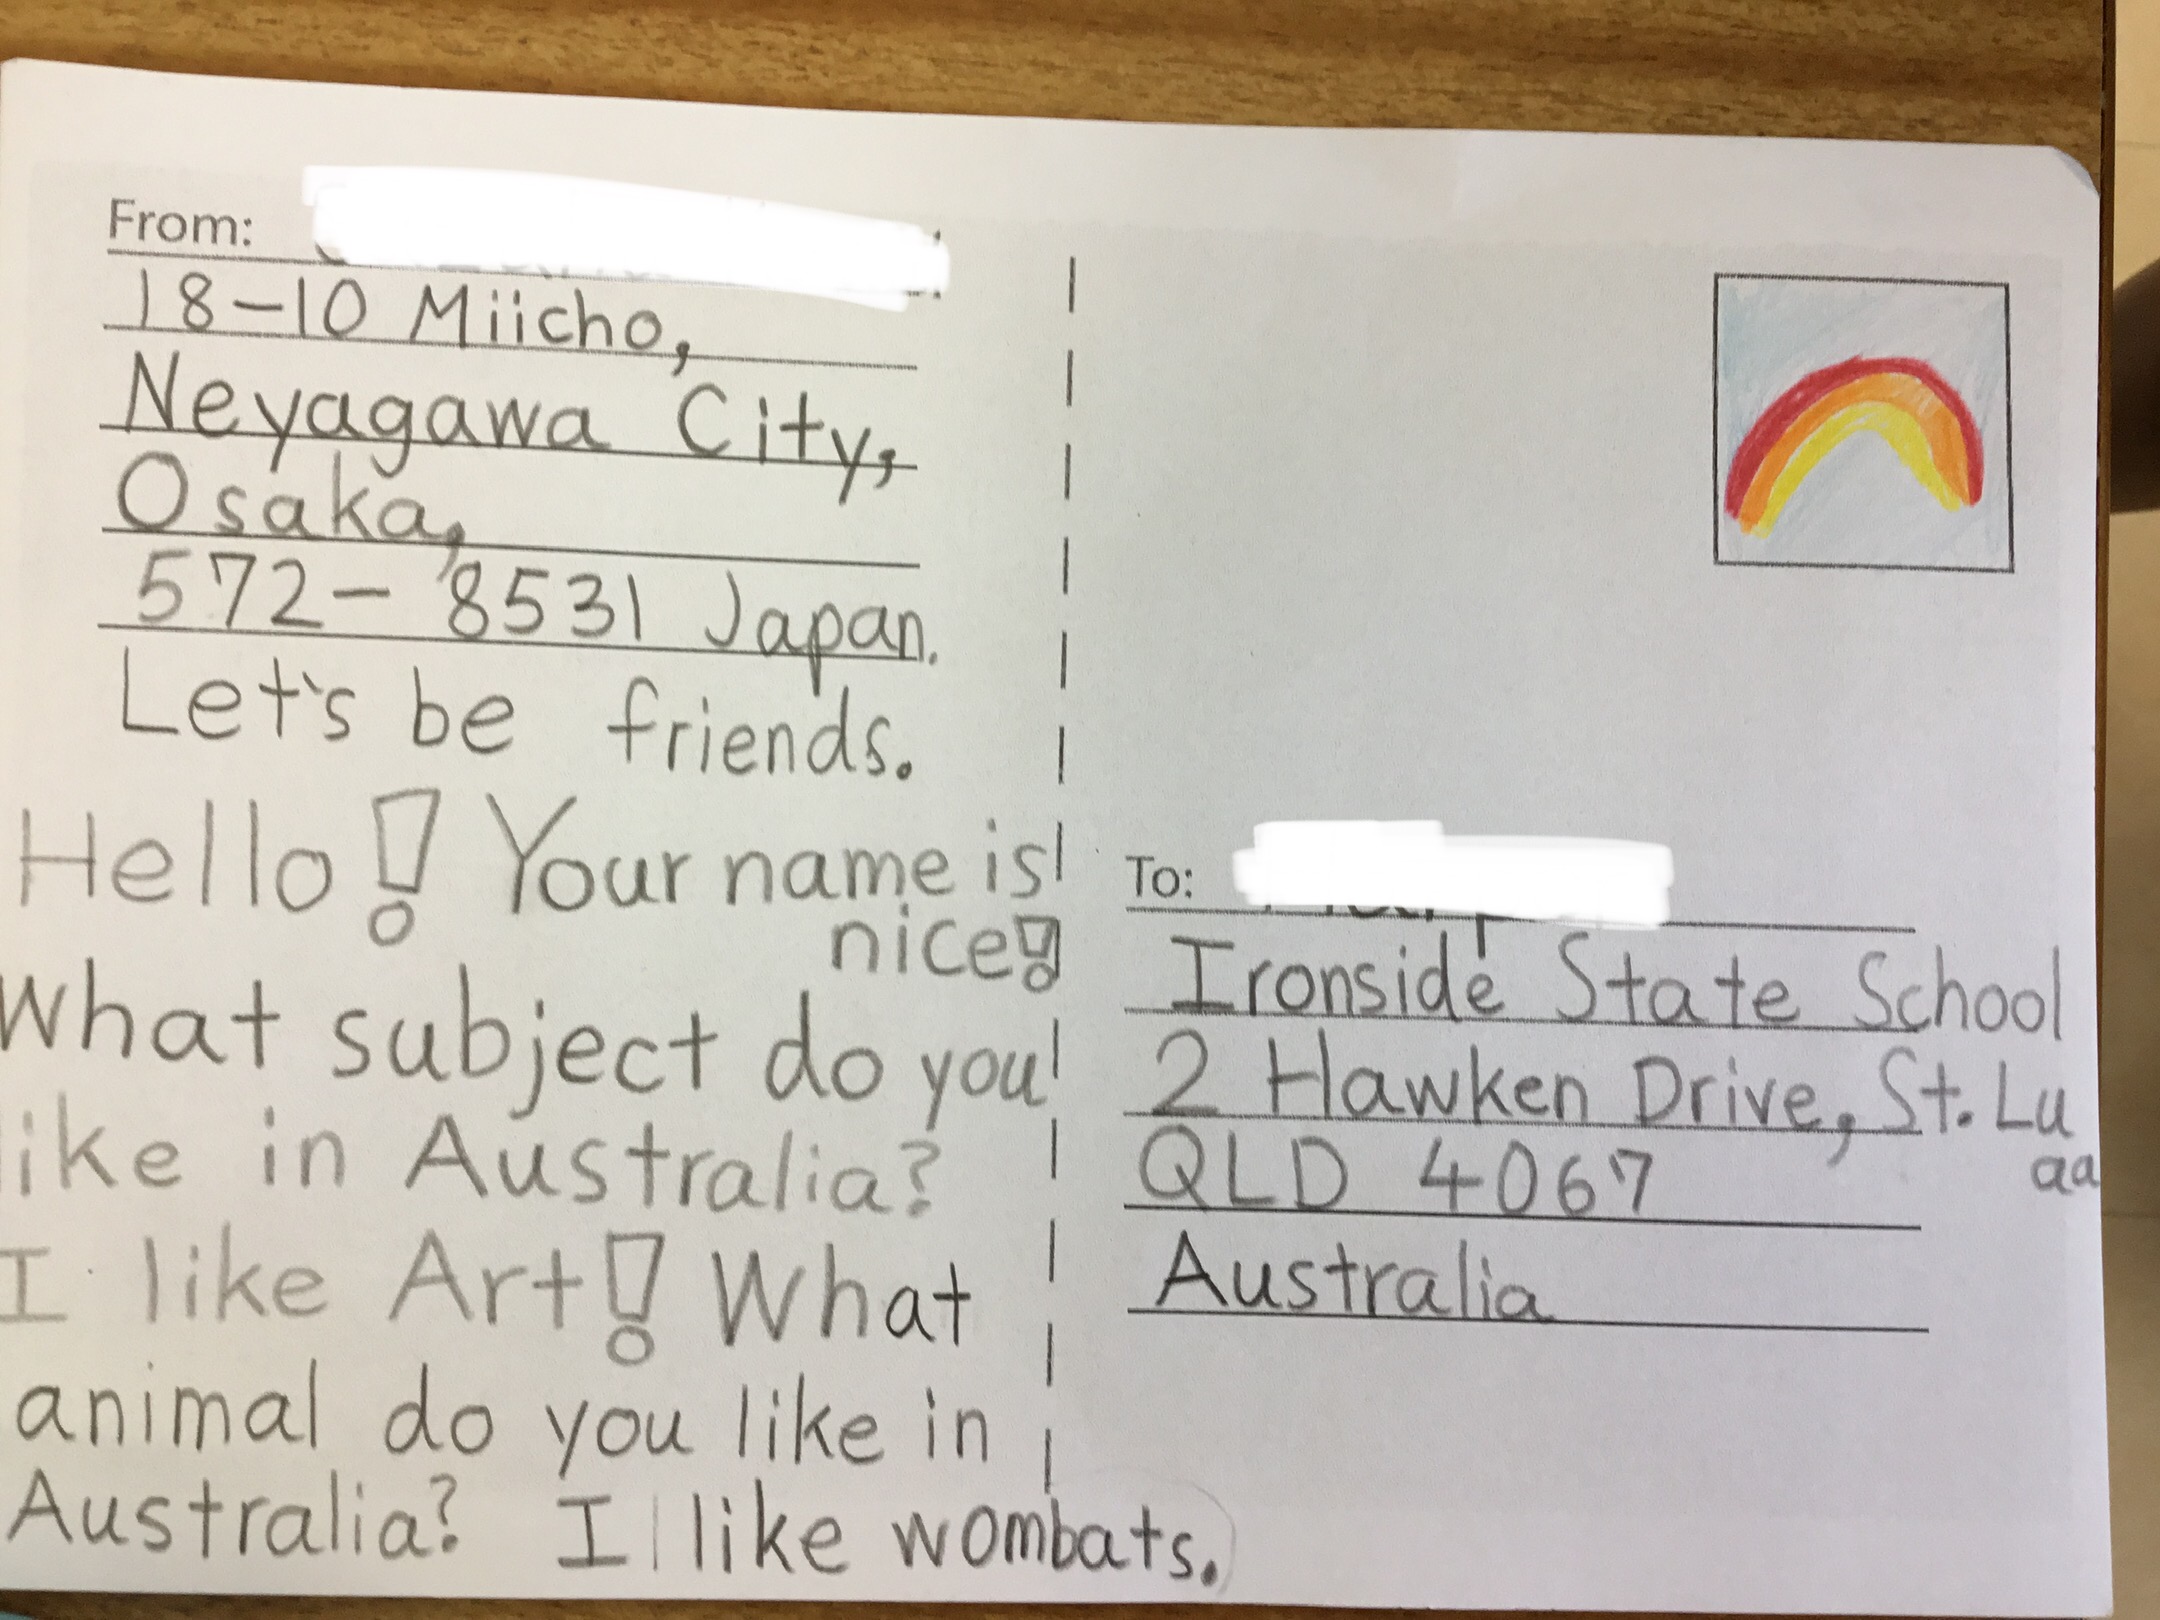 From:
18-10 Miicho,
Neyagawa City,
Osaka,
572-8531 Japan.
Let's be friends.
Hello! Your name is
nice!
What subject do you
like in Australia?
I like Art! What
animal do you like in
Australia? I like wombats.
To:
Ironside State School
2 Hawken Drive, St. Lu
aa
QLD 4067
Australia